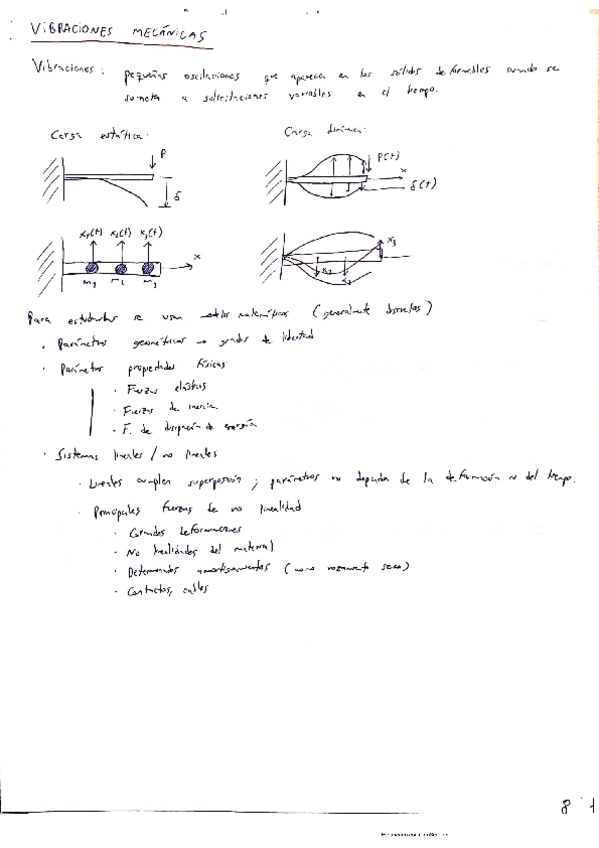 VIBRACIONES MECÁNICAS
Vibraciones: pequeñas oscilaciones que aparecen en los sólidos deformables cuando se
someten a solicitaciones variables en el tiempo.
Carga estática: Carga dinámica:
P P(t)
x
δ δ(t)
x₁(t) x₂(t) x₃(t) x₃
x
x₂
m₁ m₂ m₃
Para estudiarlas se usan modelos matemáticos (generalmente discretos)
· Parámetros geométricos → grados de libertad
· Parámetros propiedades físicas
· Fuerzas elásticas
· Fuerzas de inercia
· F. de disipación de energía
· Sistemas lineales / no lineales
· Lineales cumplen superposición; parámetros no dependen de la deformación ni del tiempo.
· Principales fuerzas de no linealidad
· Grandes deformaciones
· No linealidades del material
· Determinados amortiguamientos (como rozamiento seco)
· Contactos, cables
8 1